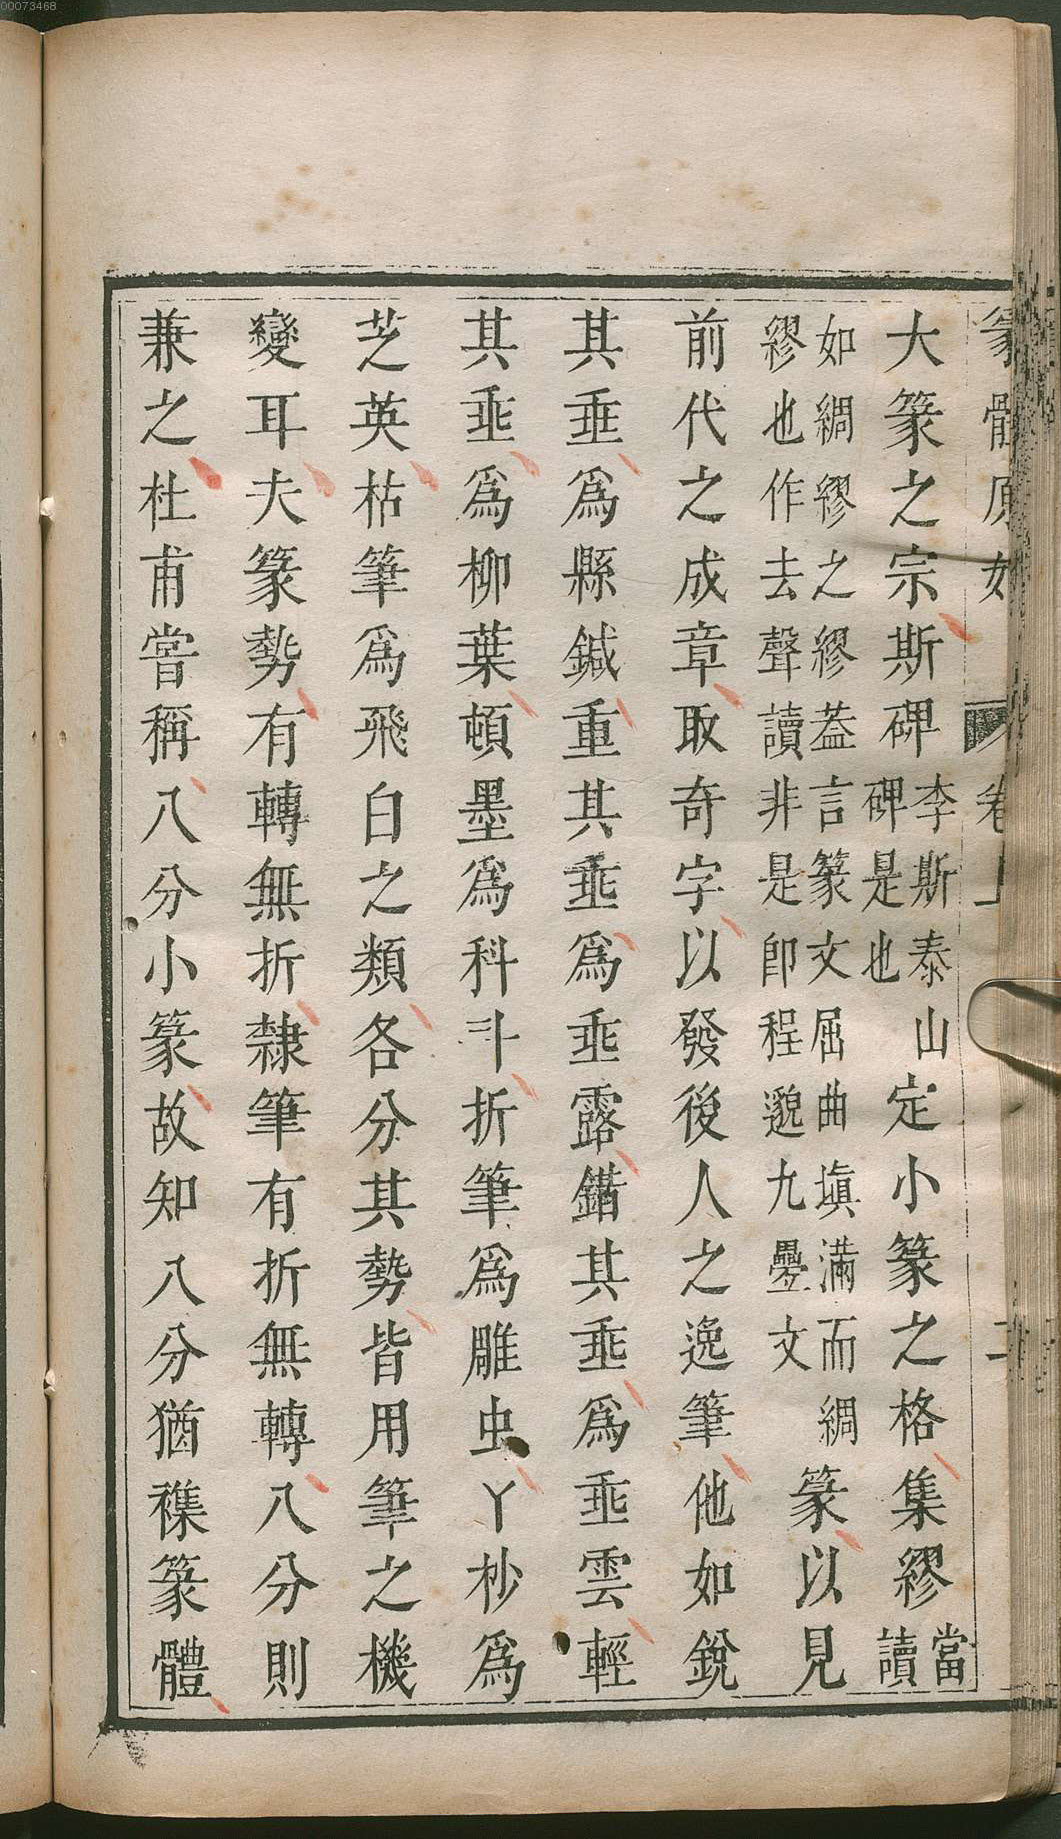 00073468
篆體原始 卷上 二
大篆之宗斯碑李斯泰山碑是也定小篆之格集繆當讀
如綢繆之繆葢言篆文屈曲塡滿而綢繆也作去聲讀非是卽程邈九曡文篆以見
前代之成章取奇字以發後人之逸筆他如銳
其垂爲縣鍼重其垂爲垂露鍇其垂爲垂雲輕
其垂爲柳葉頓墨爲科斗折筆爲雕虫丫杪爲
芝英枯筆爲飛白之類各分其勢皆用筆之機
變耳夫篆勢有轉無折隸筆有折無轉八分則
兼之杜甫嘗稱八分小篆故知八分猶襍篆體